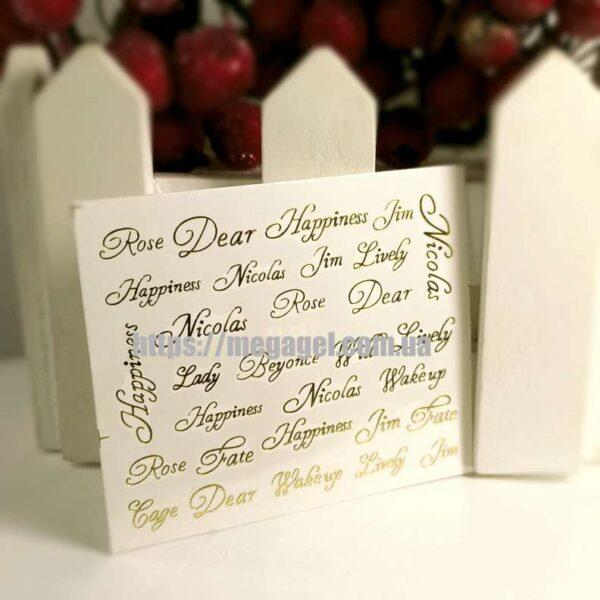 Rose Dear Happiness Jim Nicolas
Happiness Nicolas Jim Lively
Rose Dear
Happiness Nicolas Lively
https://megagel.com.ua
Lady Beyonce
Happiness Nicolas Wake up
Rose Fate Happiness Jim Fate
Cage Dear Wake up Lively Jim